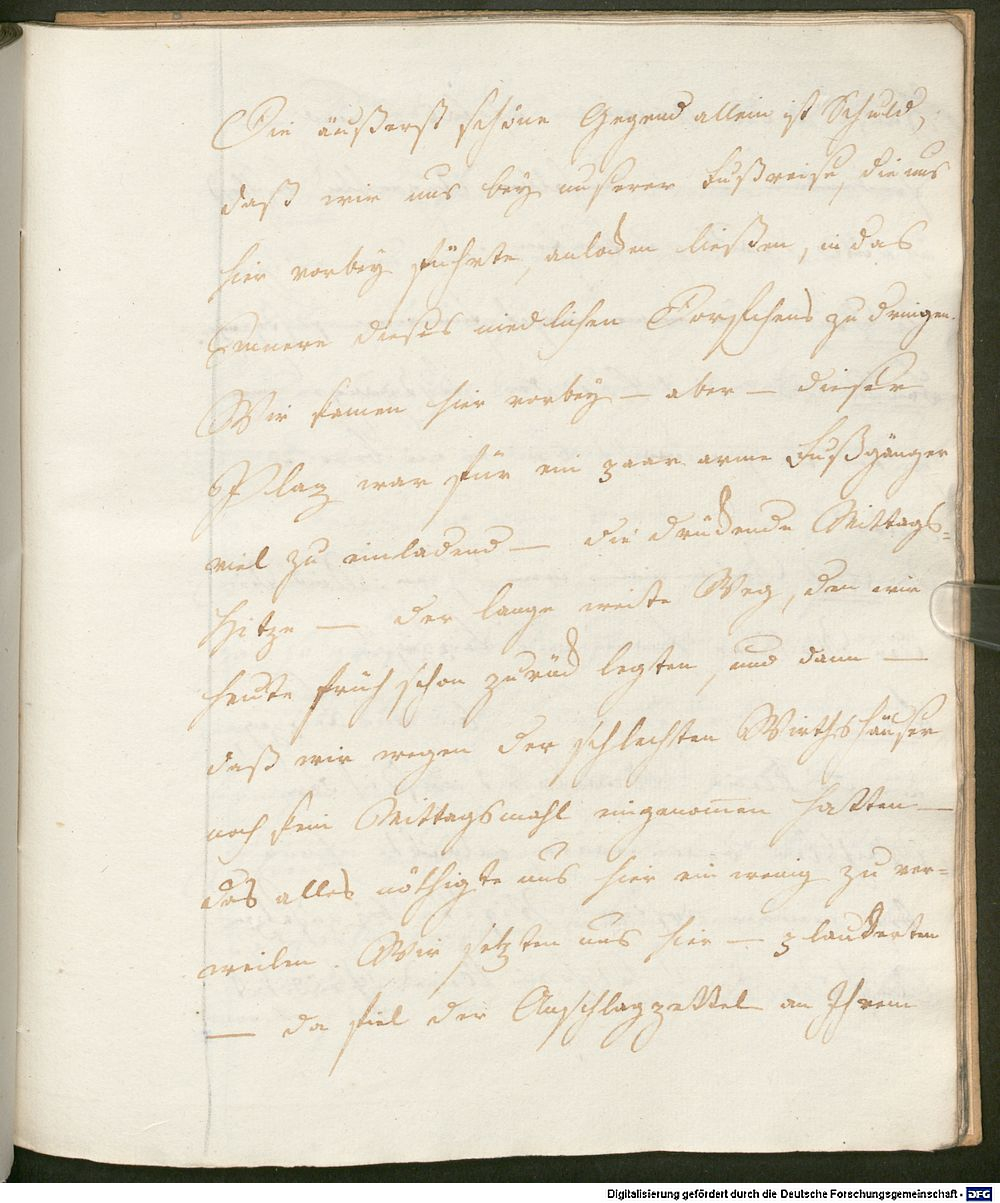 Die äußerst schöne Gegend allein ist Schuld,
daß wir uns bey unserer Fußreise, die uns
hier vorbey führte, anlocken ließen, in das
Innere dieses niedlichen Dorfchens zu dringen.
Wir kamen hier vorbey — aber — dieser
Plaz war für ein paar arme Fußgänger
viel zu einladend — die drückende Mittags=
Hitze — der lange weite Weg, den wir
heute früh schon zurück legten, und dann —
daß wir wegen der schlechten Wirthshäuser
noch kein Mittagsmahl eingenom̅en hatten —
das alles nöthigte uns hier ein wenig zu ver=
weilen. Wir setzten uns hier — plauderten
— da fiel der Anschlagzettel an Ihrem
Digitalisierung gefördert durch die Deutsche Forschungsgemeinschaft - DFG